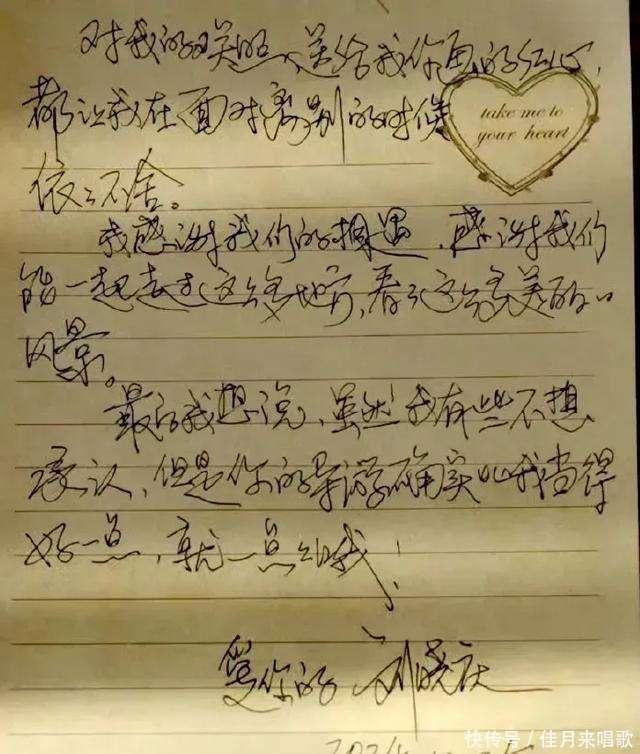 对我的关照、送给我你画的红心,
take me to
your heart
都让我在面对离别的时候
依依不舍。
我感谢我们的相遇,感谢我们
能一起去了这么多地方,看了这么多美的
风景。
最后我想说,虽然我有些不想
承认,但是你的导游确实比我当得
好一点,就一点点哦!
爱你的 刘晓庆
快传号/佳月来唱歌